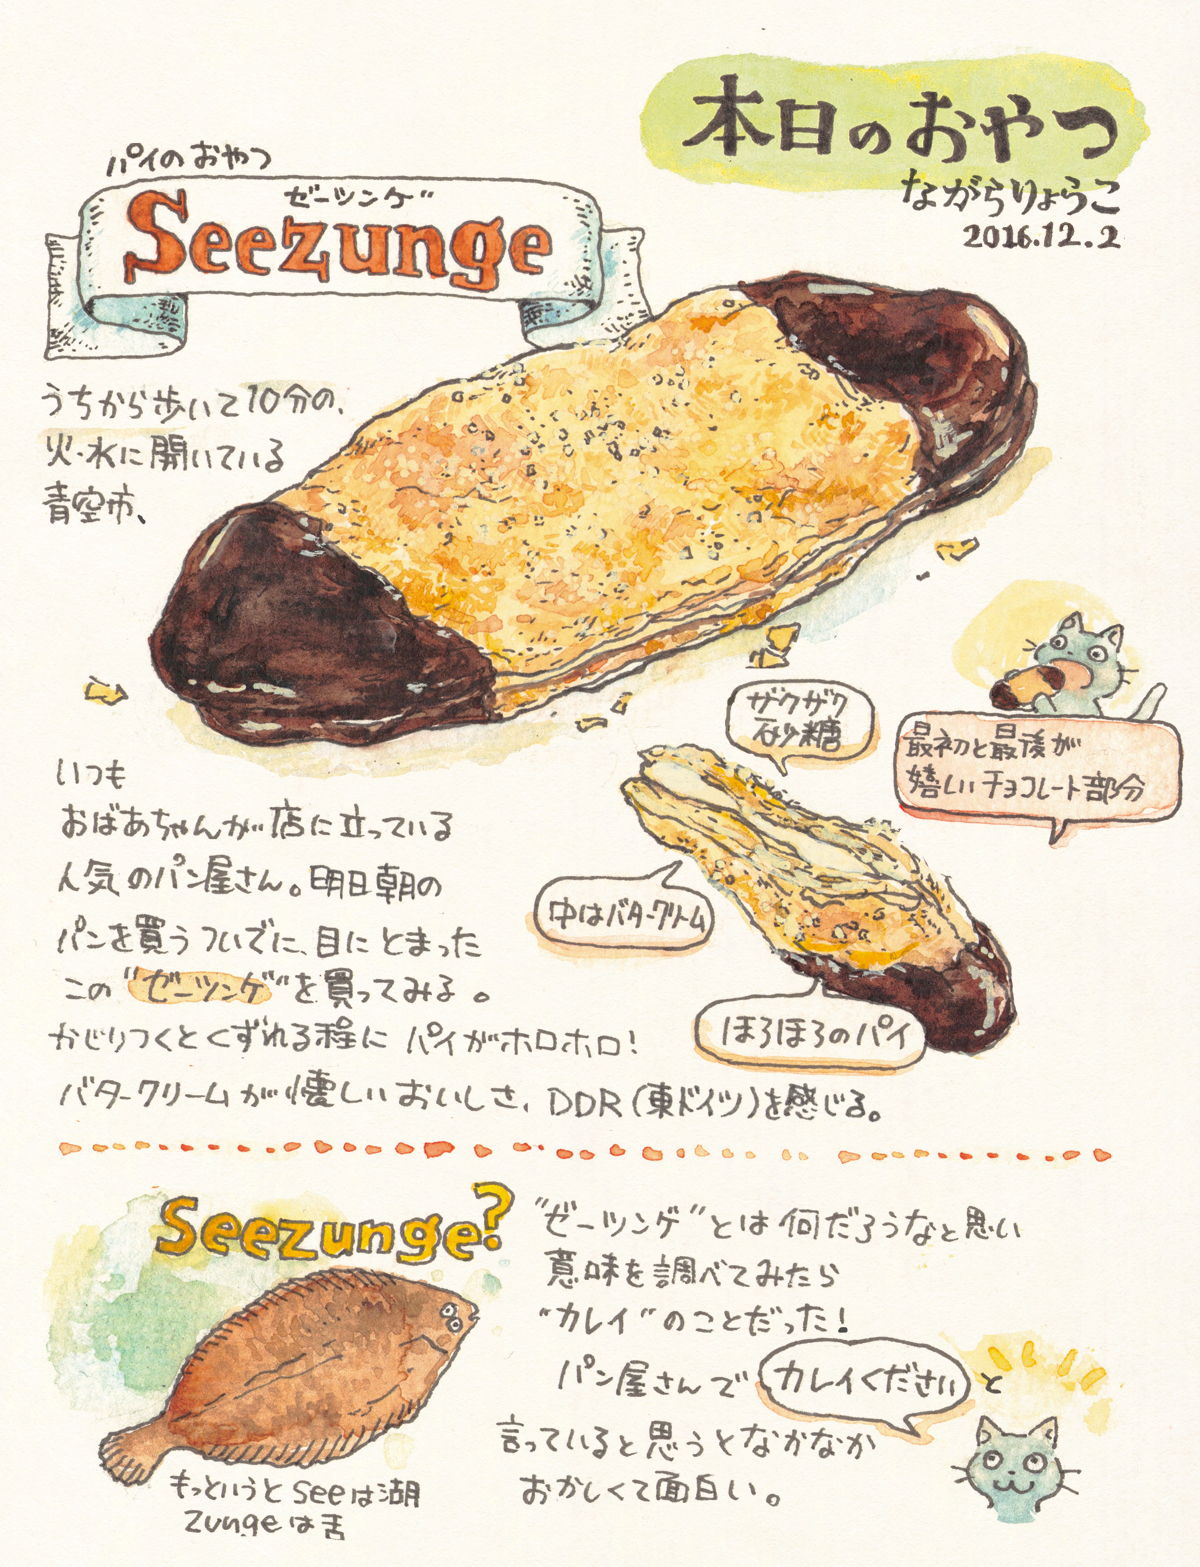 本日のおやつ
ながらりょうこ
2016.12.2
パイのおやつ
ゼーツンゲ
Seezunge
うちから歩いて10分の、
火・水に開いている
青空市、
いつも
おばあちゃんが店に立っている
人気のパン屋さん。明日朝の
パンを買うついでに、目にとまった
この"ゼーツンゲ"を買ってみる。
かじりつくとくずれる程に パイがホロホロ!
バタークリームが懐しいおいしさ、DDR(東ドイツ)を感じる。
ザクザク
砂糖
最初と最後が
嬉しいチョコレート部分
中はバタークリーム
ほろほろのパイ
Seezunge?
"ゼーツンゲ"とは何だろうなと思い
意味を調べてみたら
"カレイ"のことだった!
パン屋さんで カレイください と
言っていると思うとなかなか
おかしくて面白い。
もっというと Seeは湖
Zungeは舌